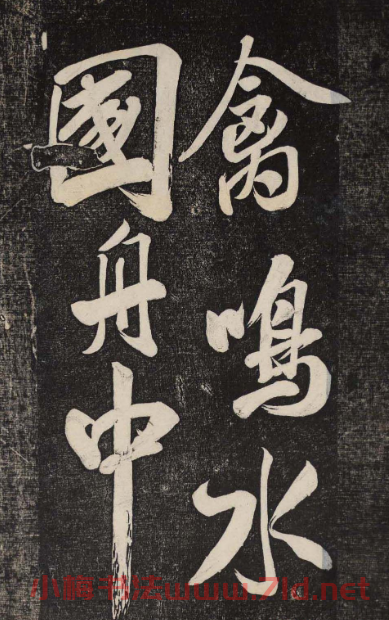 禽鳴水
國舟中
小梅书法www.7ld.net